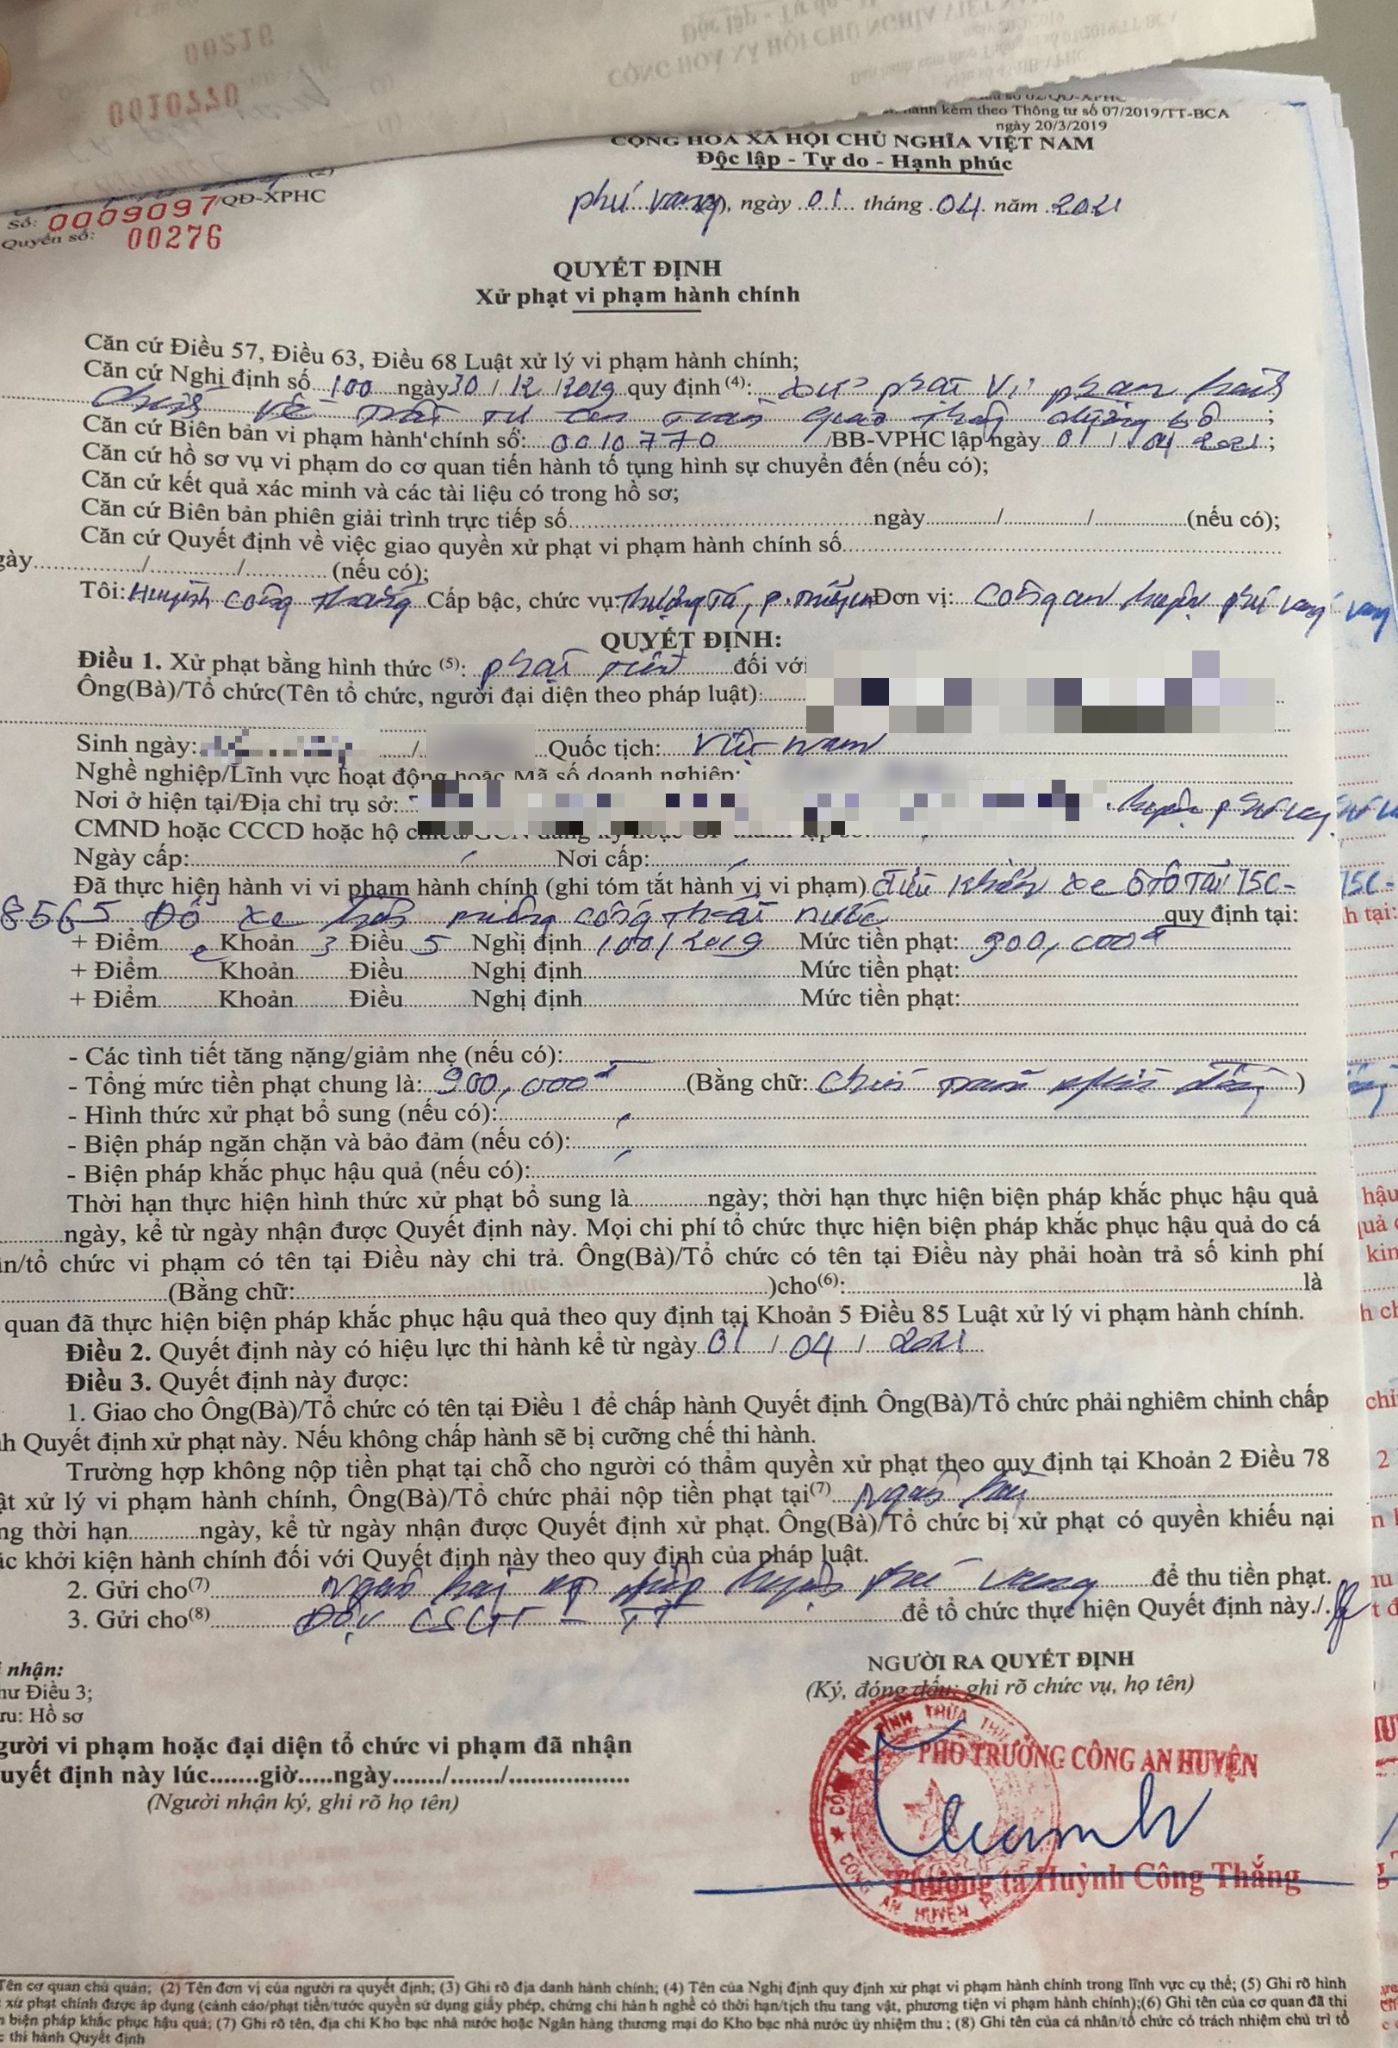 00216
0010770
CỘNG HÒA XÃ HỘI CHỦ NGHĨA VIỆT NAM
Độc lập - Tự do
hành kèm theo Thông tư số 07/2019/TT-BCA
ngày 20/3/2019
CỘNG HÒA XÃ HỘI CHỦ NGHĨA VIỆT NAM
Độc lập - Tự do - Hạnh phúc
Số: 0009097/QĐ-XPHC
Quyển số: 00276
phú vang, ngày 01 tháng 04 năm 2021
QUYẾT ĐỊNH
Xử phạt vi phạm hành chính
Căn cứ Điều 57, Điều 63, Điều 68 Luật xử lý vi phạm hành chính;
Căn cứ Nghị định số 100 ngày 30/12/2019 quy định (4): xử phạt vi phạm hành
chính về trật tự an toàn giao thông đường bộ;
Căn cứ Biên bản vi phạm hành chính số: 0010770/BB-VPHC lập ngày 01/04/2021;
Căn cứ hồ sơ vụ vi phạm do cơ quan tiến hành tố tụng hình sự chuyển đến (nếu có);
Căn cứ kết quả xác minh và các tài liệu có trong hồ sơ;
Căn cứ Biên bản phiên giải trình trực tiếp số........ngày......../......../........(nếu có);
Căn cứ Quyết định về việc giao quyền xử phạt vi phạm hành chính số........
gày......../......../........ (nếu có);
Tôi: Huỳnh Công Thắng Cấp bậc, chức vụ: Thượng Tá, Đơn vị: Công an huyện phú vang
QUYẾT ĐỊNH:
Điều 1. Xử phạt bằng hình thức (5): phạt tiền đối với
Ông(Bà)/Tổ chức(Tên tổ chức, người đại diện theo pháp luật):
Sinh ngày: / Quốc tịch: Việt nam
Nghề nghiệp/Lĩnh vực hoạt động hoặc Mã số doanh nghiệp:
Nơi ở hiện tại/Địa chỉ trụ sở: huyện phú vang
CMND hoặc CCCD hoặc hộ chiếu/GCN đăng ký hoặc GP thành lập số:
Ngày cấp:........Nơi cấp:........
Đã thực hiện hành vi vi phạm hành chính (ghi tóm tắt hành vi vi phạm) điều khiển xe ôtô tải 75C-
8565 Đỗ xe trên miệng cống thoát nước quy định tại:
+ Điểm e Khoản 3 Điều 5 Nghị định 100/2019 Mức tiền phạt: 900,000đ
+ Điểm........Khoản........Điều........Nghị định........Mức tiền phạt:
+ Điểm........Khoản........Điều........Nghị định........Mức tiền phạt:
- Các tình tiết tăng nặng/giảm nhẹ (nếu có):
- Tổng mức tiền phạt chung là: 900,000đ (Bằng chữ: Chín trăm nghìn đồng)
- Hình thức xử phạt bổ sung (nếu có):
- Biện pháp ngăn chặn và bảo đảm (nếu có):
- Biện pháp khắc phục hậu quả (nếu có):
Thời hạn thực hiện hình thức xử phạt bổ sung là........ngày; thời hạn thực hiện biện pháp khắc phục hậu quả
........ngày, kể từ ngày nhận được Quyết định này. Mọi chi phí tổ chức thực hiện biện pháp khắc phục hậu quả do cá
n/tổ chức vi phạm có tên tại Điều này chi trả. Ông(Bà)/Tổ chức có tên tại Điều này phải hoàn trả số kinh phí
........(Bằng chữ:........)cho(6):........là
quan đã thực hiện biện pháp khắc phục hậu quả theo quy định tại Khoản 5 Điều 85 Luật xử lý vi phạm hành chính.
Điều 2. Quyết định này có hiệu lực thi hành kể từ ngày 01/04/2021
Điều 3. Quyết định này được:
1. Giao cho Ông(Bà)/Tổ chức có tên tại Điều 1 để chấp hành Quyết định. Ông(Bà)/Tổ chức phải nghiêm chỉnh chấp
h Quyết định xử phạt này. Nếu không chấp hành sẽ bị cưỡng chế thi hành.
Trường hợp không nộp tiền phạt tại chỗ cho người có thẩm quyền xử phạt theo quy định tại Khoản 2 Điều 78
ật xử lý vi phạm hành chính, Ông(Bà)/Tổ chức phải nộp tiền phạt tại(7) Ngân hàng
ng thời hạn........ngày, kể từ ngày nhận được Quyết định xử phạt. Ông(Bà)/Tổ chức bị xử phạt có quyền khiếu nại
ặc khởi kiện hành chính đối với Quyết định này theo quy định của pháp luật.
2. Gửi cho(7) Ngân hàng huyện Phú Vang để thu tiền phạt.
3. Gửi cho(8) Đội CSGT - TT để tổ chức thực hiện Quyết định này./.
nhận:
hư Điều 3;
ưu: Hồ sơ
NGƯỜI RA QUYẾT ĐỊNH
(Ký, đóng dấu; ghi rõ chức vụ, họ tên)
gười vi phạm hoặc đại diện tổ chức vi phạm đã nhận
uyết định này lúc.......giờ.....ngày......./......./.................
(Người nhận ký, ghi rõ họ tên)
PHÓ TRƯỞNG CÔNG AN HUYỆN
Thượng tá Huỳnh Công Thắng
Tên cơ quan chủ quản; (2) Tên đơn vị của người ra quyết định; (3) Ghi rõ địa danh hành chính; (4) Tên của Nghị định quy định xử phạt vi phạm hành chính trong lĩnh vực cụ thể; (5) Ghi rõ hình
xử phạt chính được áp dụng (cảnh cáo/phạt tiền/tước quyền sử dụng giấy phép, chứng chỉ hành nghề có thời hạn/tịch thu tang vật, phương tiện vi phạm hành chính);(6) Ghi tên của cơ quan đã thi
biện pháp khắc phục hậu quả; (7) Ghi rõ tên, địa chỉ Kho bạc nhà nước hoặc Ngân hàng thương mại do Kho bạc nhà nước ủy nhiệm thu ; (8) Ghi tên của cá nhân/tổ chức có trách nhiệm chủ trì tổ
thi hành Quyết định